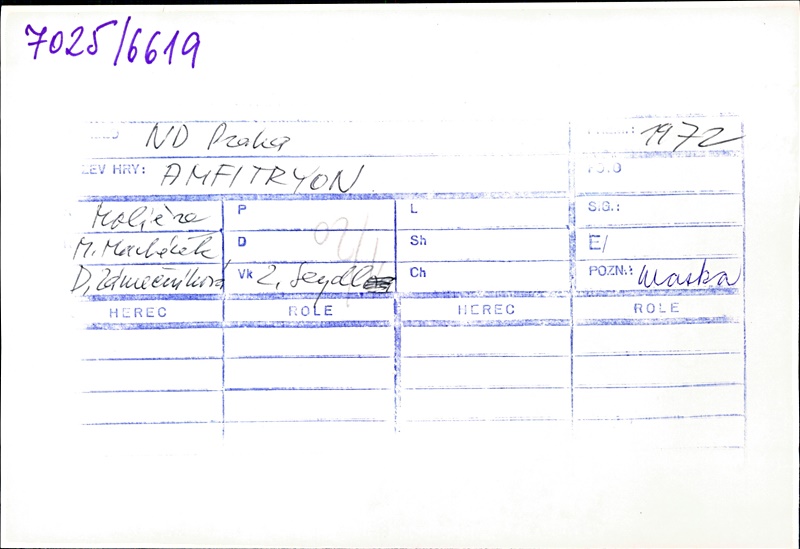 7025/6619
ND Praha 1972
LEV HRY: AMFITRYON
Moliére P L S.G.:
M. Macháček D Sh E/
D. Zámečníková Vk Z. Seydl Ch POZN.: maska
HEREC ROLE HEREC ROLE